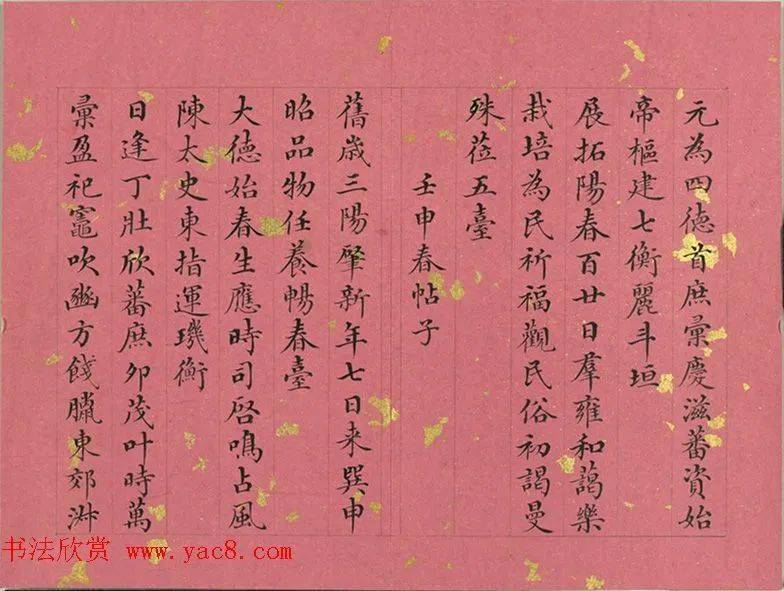 元為四德首庶彚慶滋蕃資始
帝樞建七衡麗斗垣
展拓陽春百廿日羣雍和藹樂
栽培為民祈福觀民俗初謁曼
殊莅五臺
壬申春帖子
舊歲三陽肇新年七日来巽申
昭品物任養暢春臺
大德始春生應時司啓鳴占風
陳太史東指運璣衡
日逢丁壯欣蕃庶卯茂叶時萬
彚盈祀竈吹豳方餞臘東郊
书法欣赏 www.yac8.com